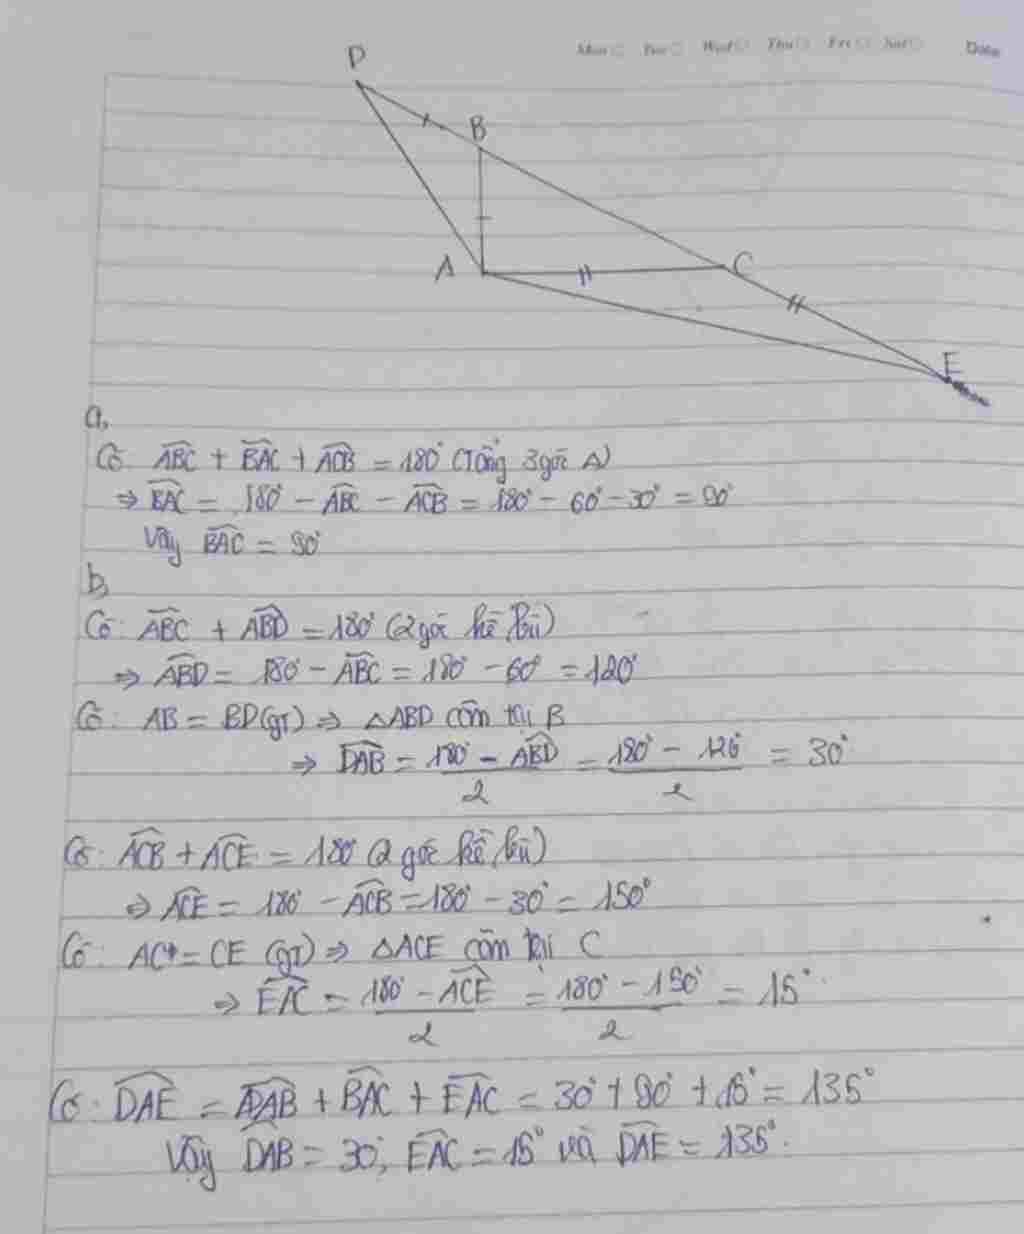 Mon Tue Wed Thu Fri Sat Date
D
B
A
C
E
a,
Có: ABC + BAC + ACB = 180° (Tổng 3 góc Δ)
⇒ BAC = 180° - ABC - ACB = 180° - 60° - 30° = 90°
Vậy BAC = 90°
b,
Có: ABC + ABD = 180° (2 góc kề bù)
⇒ ABD = 180° - ABC = 180° - 60° = 120°
Có: AB = BD (gt) ⇒ △ABD cân tại B
⇒ DAB = (180° - ABD)/2 = (180° - 120°)/2 = 30°
Có: ACB + ACE = 180° (2 góc kề bù)
⇒ ACE = 180° - ACB = 180° - 30° = 150°
Có: AC = CE (gt) ⇒ △ACE cân tại C
⇒ EAC = (180° - ACE)/2 = (180° - 150°)/2 = 15°
Có: DAE = DAB + BAC + EAC = 30° + 90° + 15° = 135°
Vậy DAB = 30°, EAC = 15° và DAE = 135°.